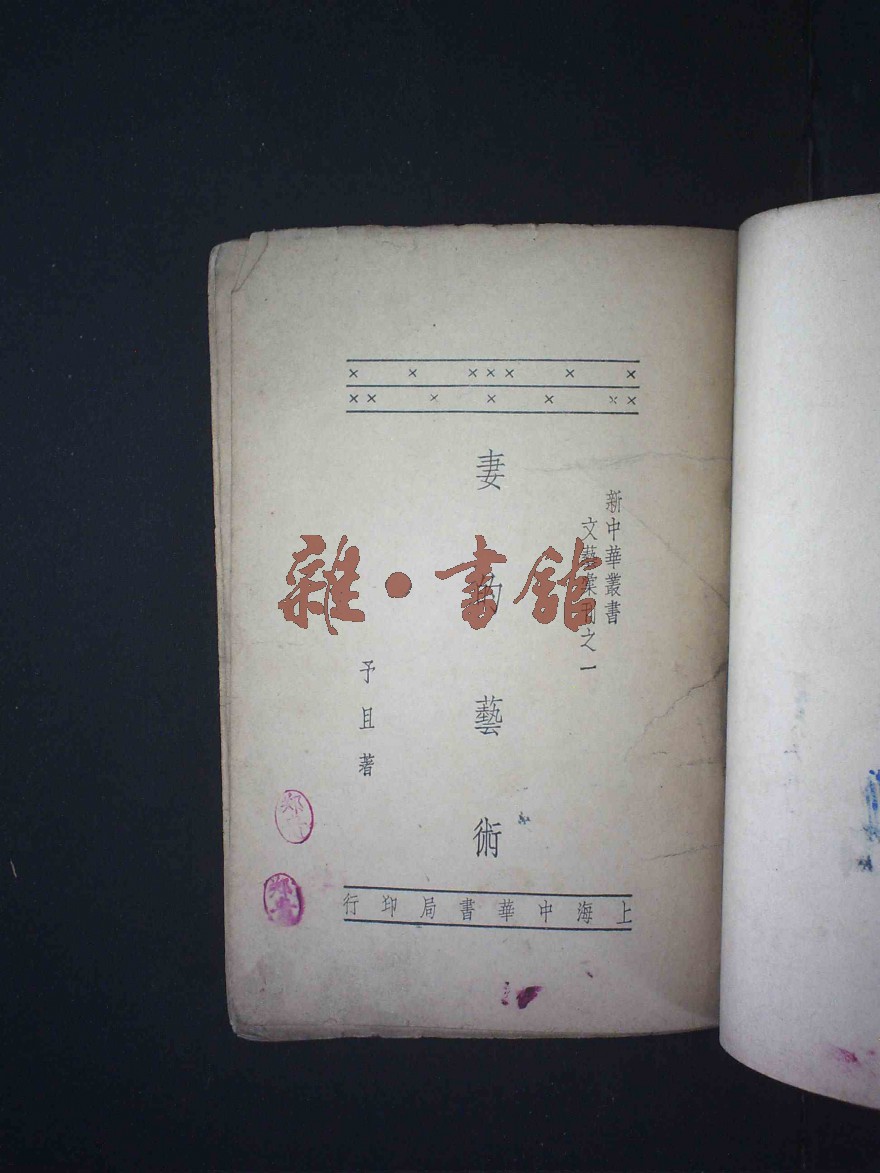 新中華叢書
文藝彙刊之一
妻的藝術
予且著
上海中華書局印行
雜·書館